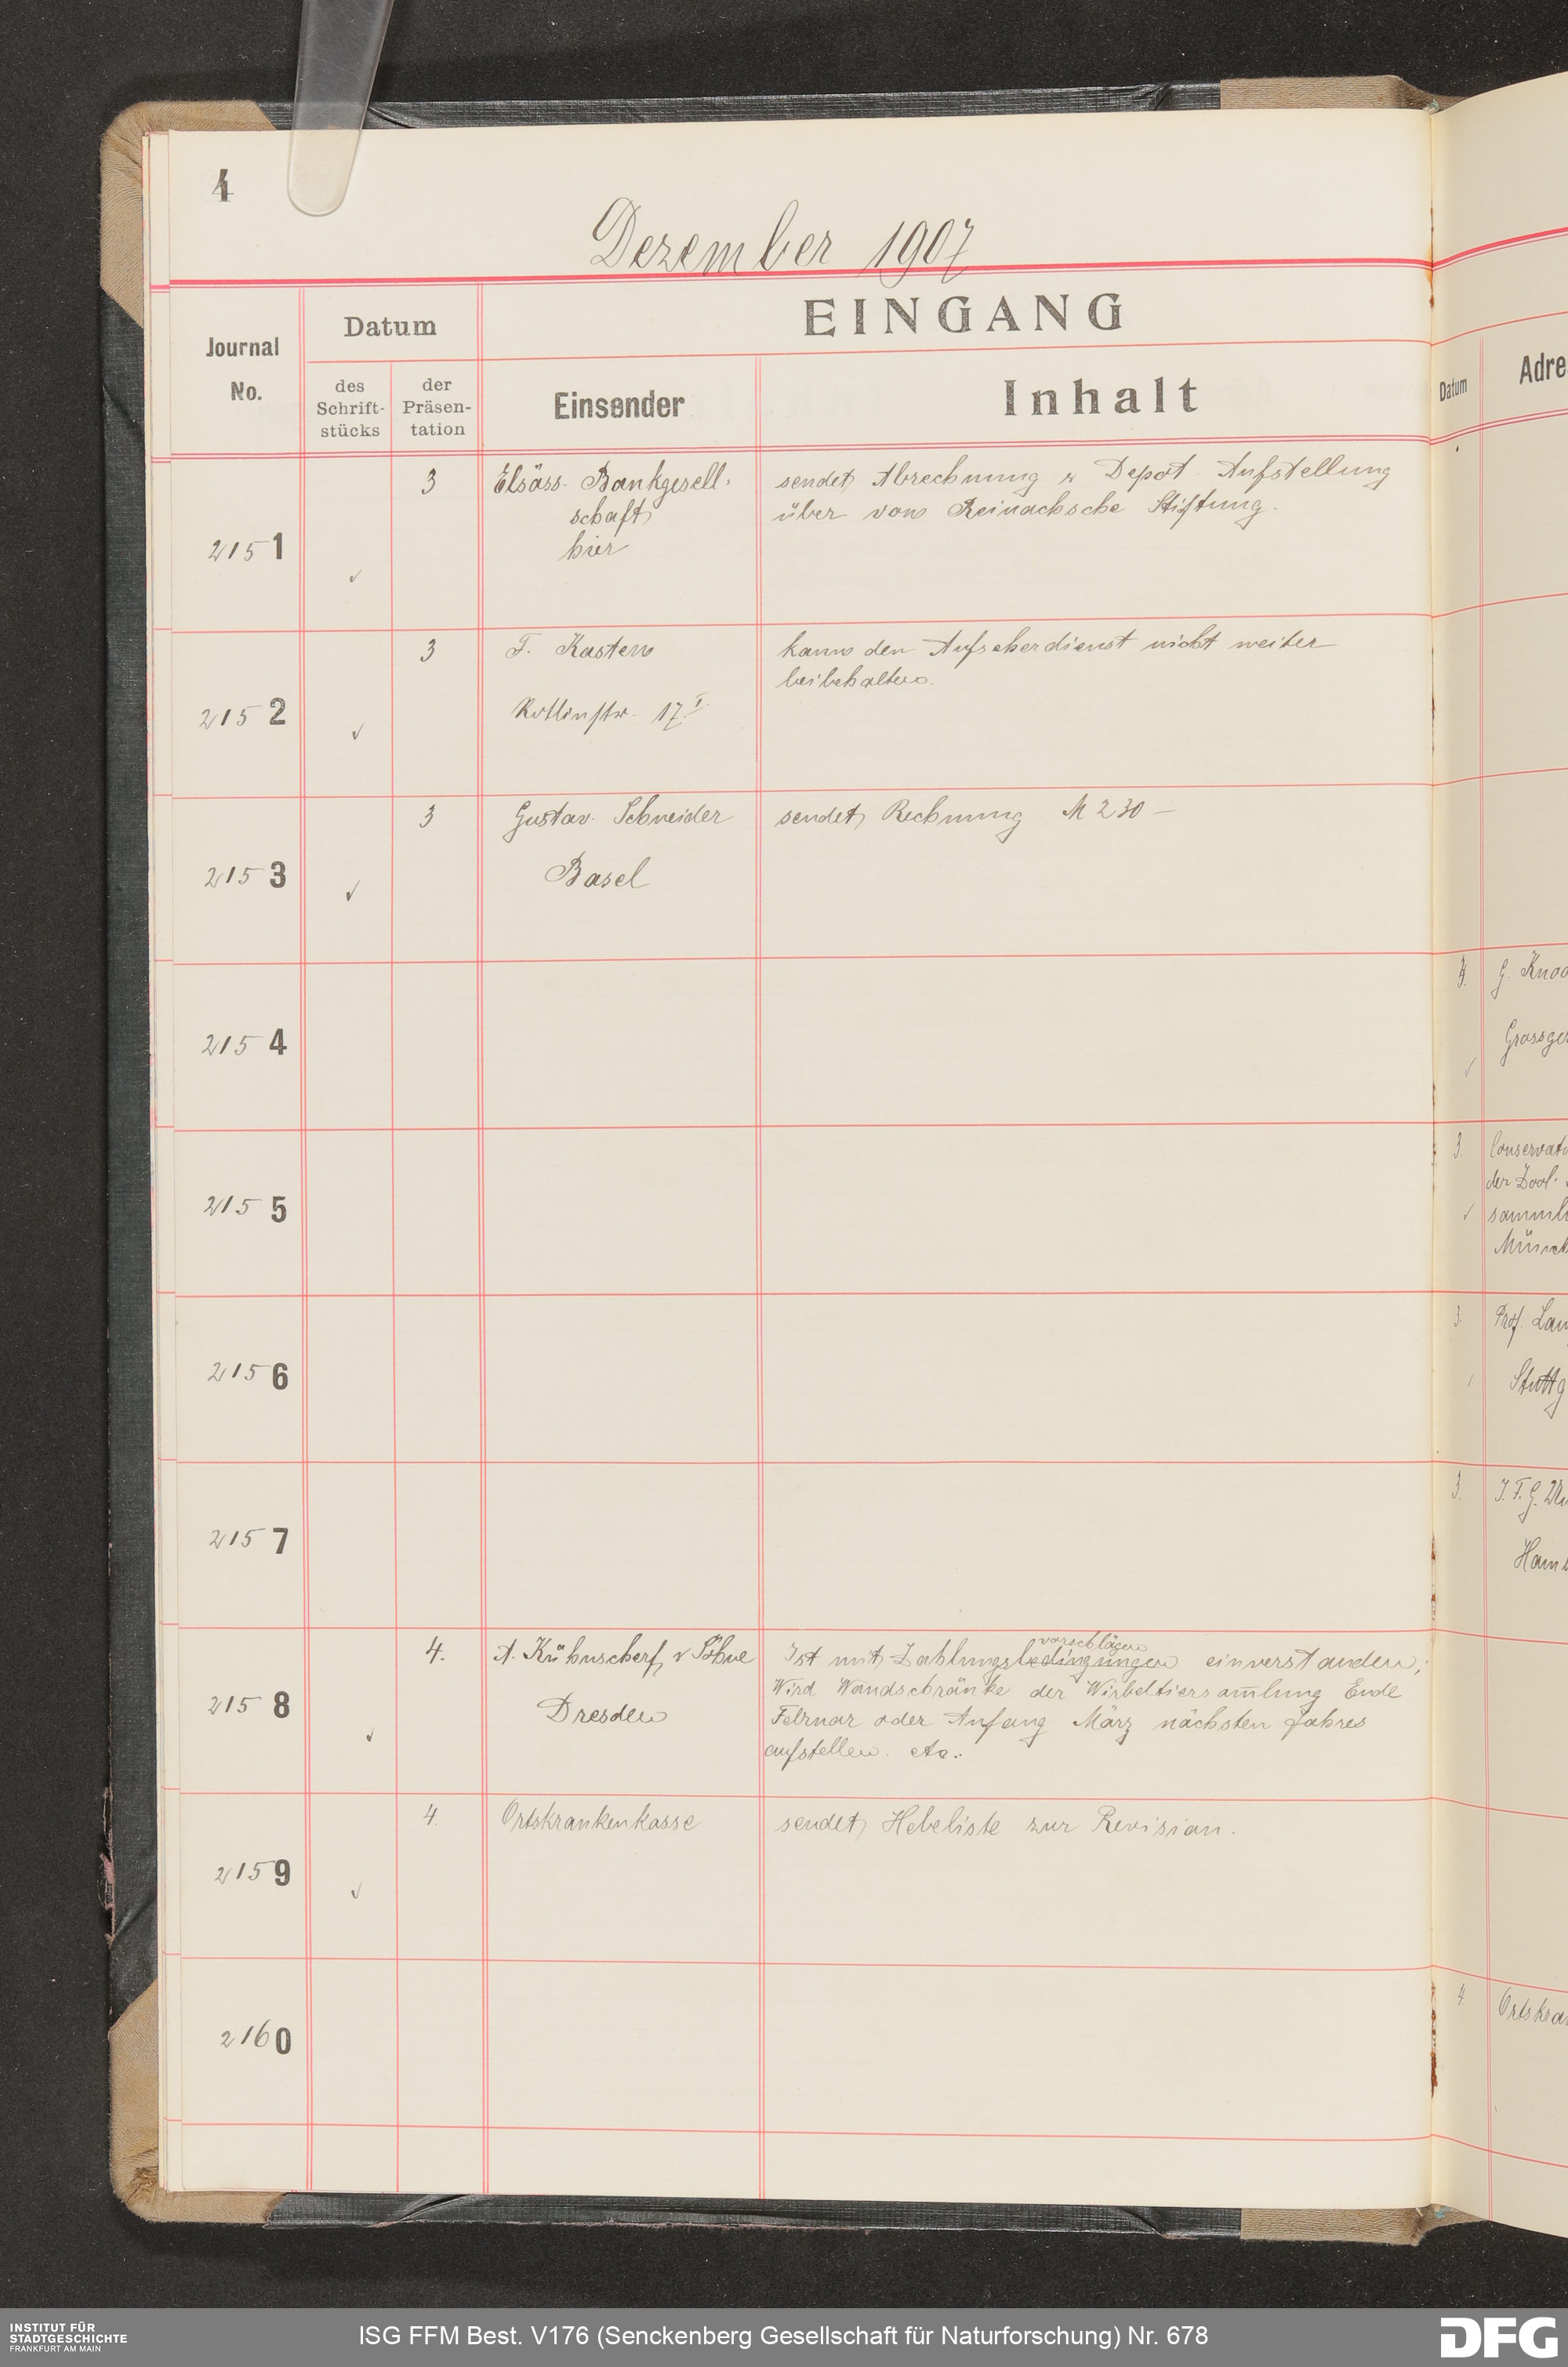 4
Dezember 1907
Journal No.
Datum
des Schrift-stücks
der Präsen-tation
EINGANG
Einsender
Inhalt
Datum
Adre
2151
✓
3
Elsäss. Bankgesell-
schaft
hier
sendet Abrechnung & Depot Aufstellung
über von Reinachsche Stiftung.
2152
✓
3
F. Kasten
17 I
kann den Aufseherdienst nicht weiter
beibehalten.
2153
✓
3
Gustav Schneider
Basel
sendet Rechnung M 230 —
2154
4.
G. Knod
Grossge
✓
2155
3.
Conservato
der Zool.
✓ samml
Münch
2156
3.
Prof. Lam
Stuttg
2157
3.
J.F.G.
Hamb
2158
✓
4.
A. Kühnscherf & Söhne
Dresden
vorschlägen
Ist mit Zahlungsbedingungen einverstanden;
Wird Wandschränke der Wirbeltiersam̅lung Ende
Februar oder Anfang März nächsten Jahres
aufstellen. etc.
2159
✓
4.
Ortskrankenkasse
sendet Hebeliste zur Revision.
2160
4
Ortskra
INSTITUT FÜR
STADTGESCHICHTE
FRANKFURT AM MAIN
ISG FFM Best. V176 (Senckenberg Gesellschaft für Naturforschung) Nr. 678
DFG